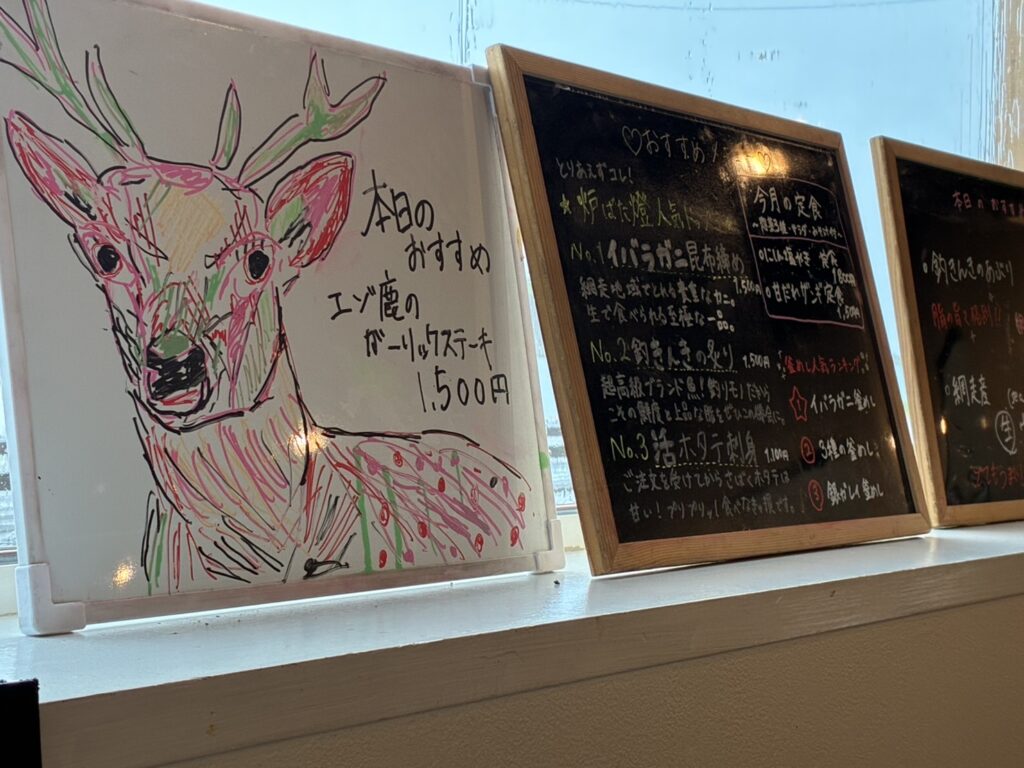 本日の
おすすめ
エゾ鹿の
ガーリックステーキ
1,500円
おすすめ
とりあえずコレ!
炉ばた燈 人気
No.1 イバラガニ昆布締め 1,500円
網走地域でとれる貴重なカニ。
生で食べられる至極な一品。
No.2 釣きんきの炙り 1,500円
超高級ブランド魚!釣りモノだから
こその鮮度と上品な脂をぜひこの機会に。
No.3 活ホタテ刺身 1,100円
ご注文を受けてからさばくホタテは
甘い!プリプリッ!食べなきゃ損です。
今月の定食
定食
甘だれザンギ定食
1,500円
釜めし人気ランキング
イバラガニ釜めし
② 3種の釜めし
③ 釜めし
本日のおすすめ
釣きんきのあぶり
網走産
生